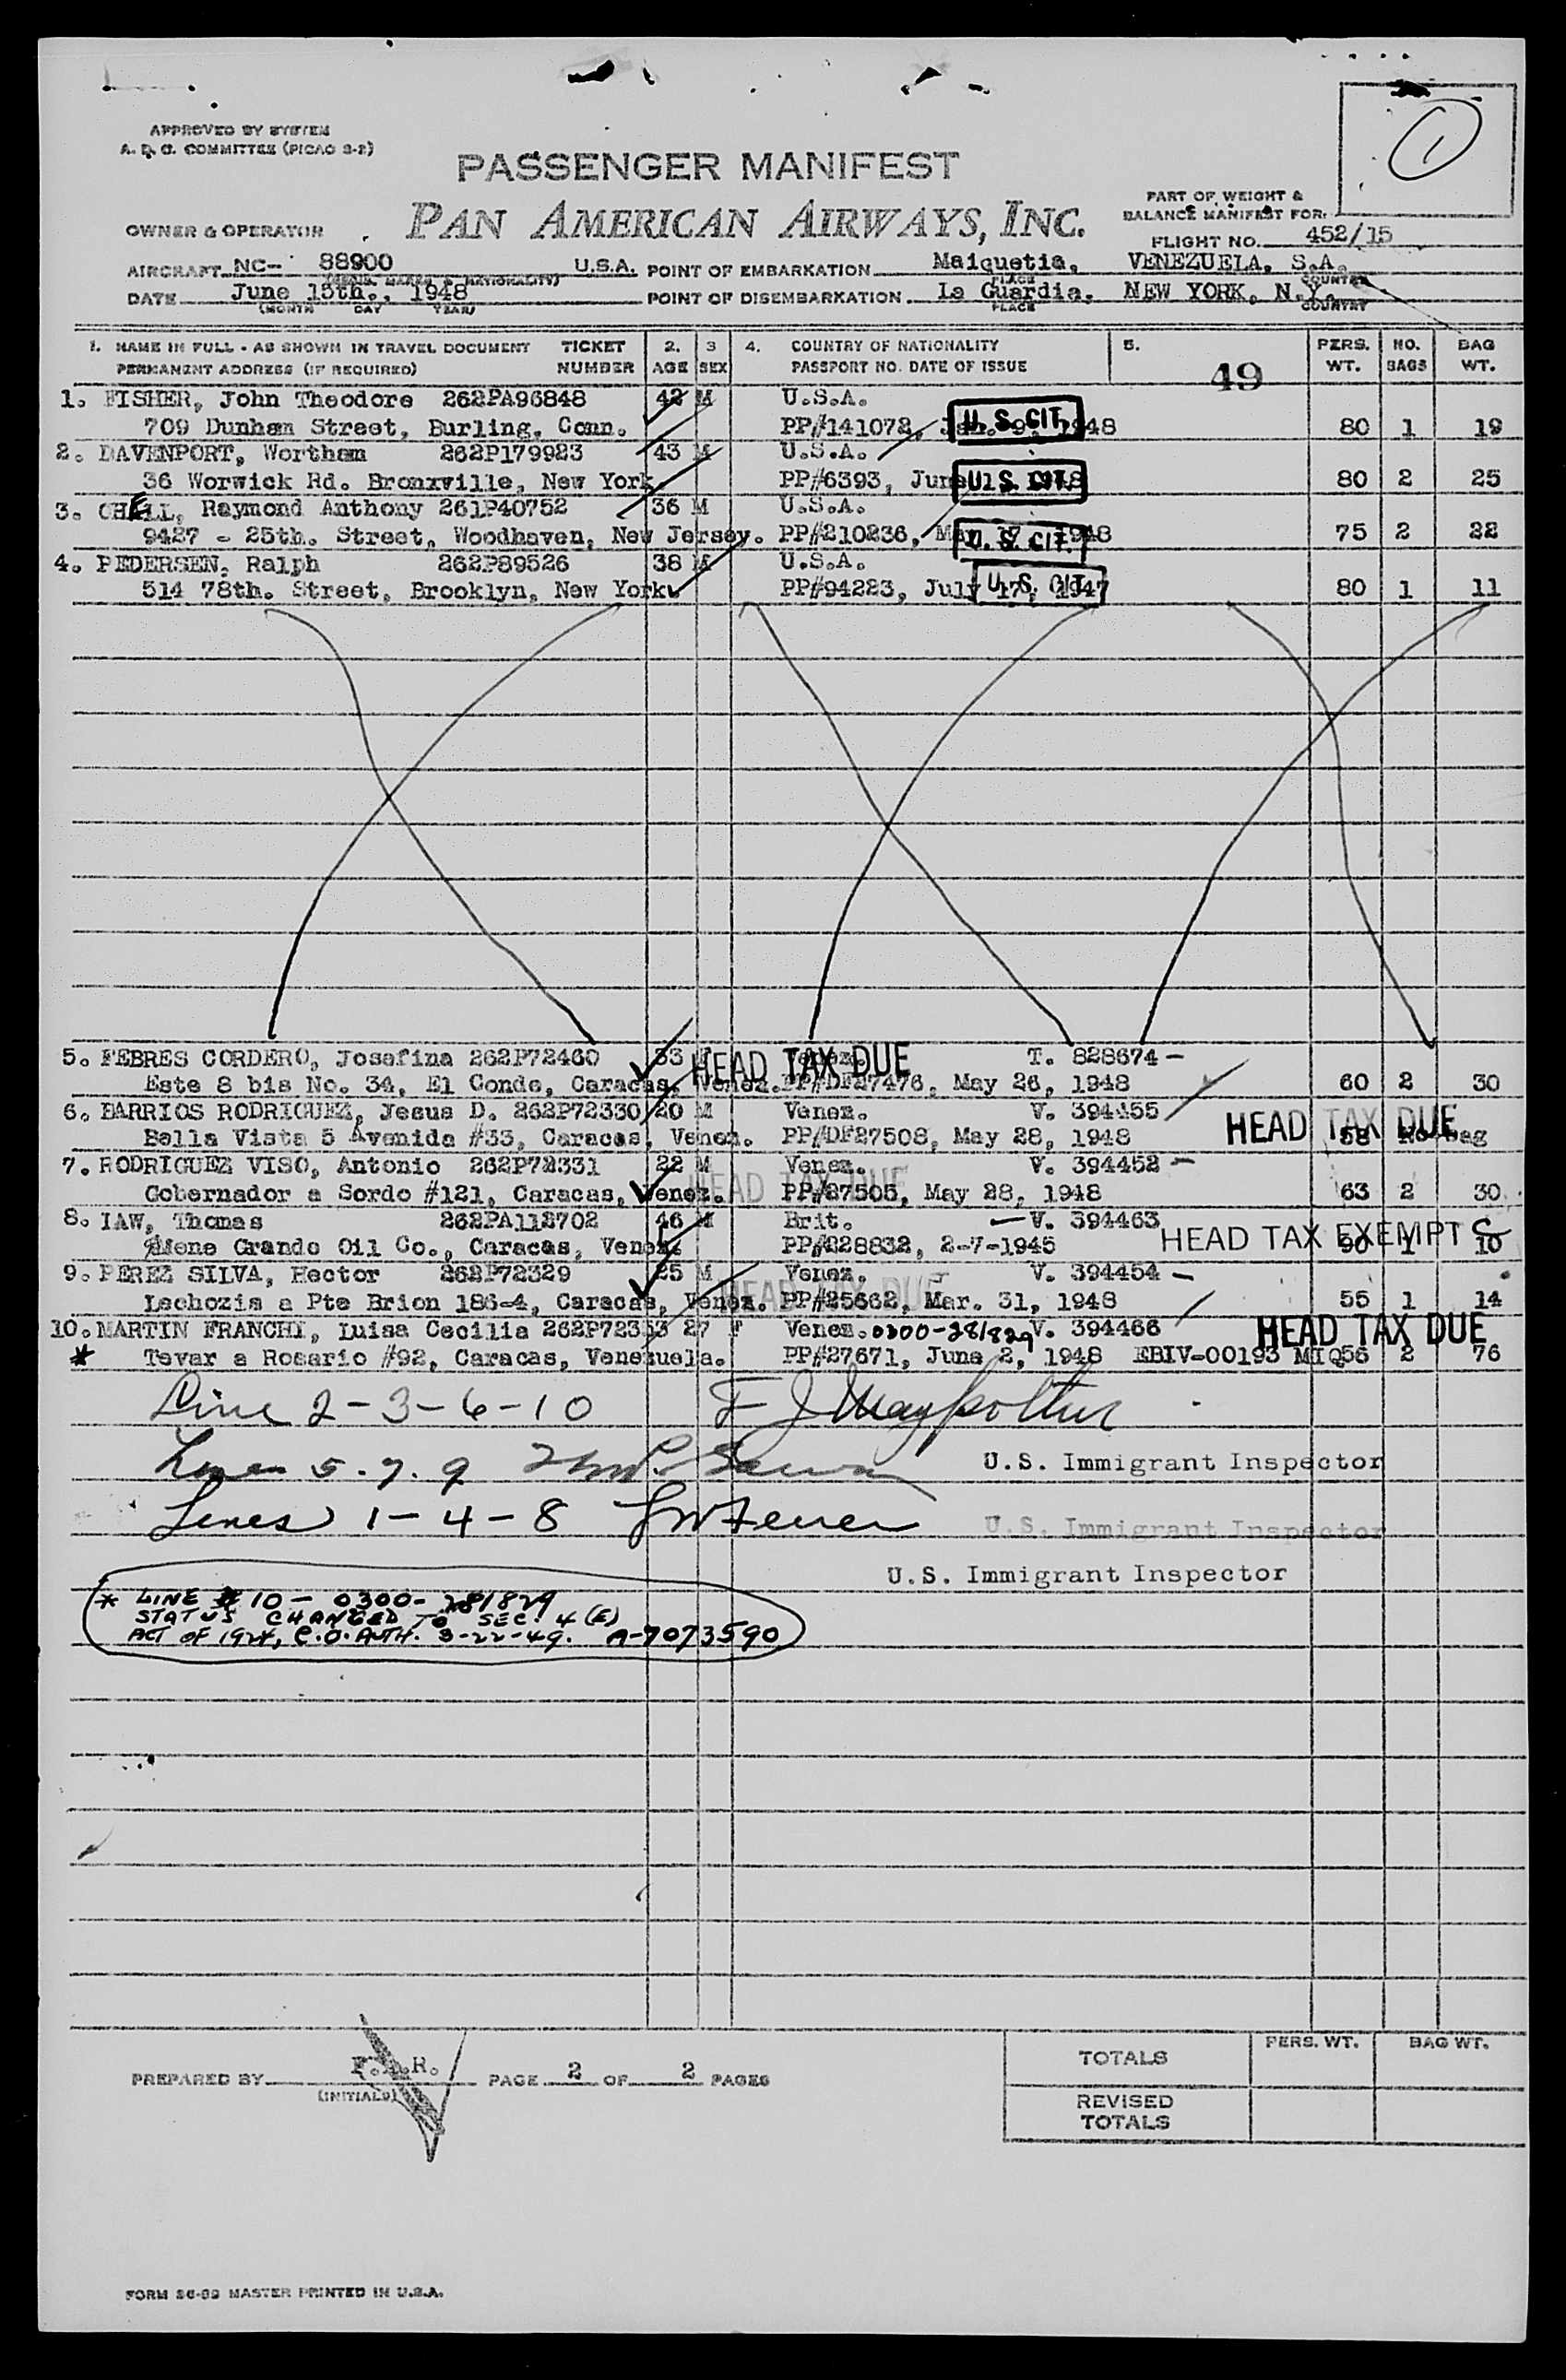 APPROVED BY SYSTEM
A. D. C. COMMITTEE (PICAO 3-2)
1
PASSENGER MANIFEST
PART OF WEIGHT &
BALANCE MANIFEST FOR:
OWNER & OPERATOR PAN AMERICAN AIRWAYS, INC.
FLIGHT NO. 452/15
AIRCRAFT NC- 88900 U.S.A. POINT OF EMBARKATION Maiquetia, VENEZUELA, S.A.
PLACE COUNTRY
DATE June 15th., 1948 POINT OF DISEMBARKATION La Guardia, NEW YORK, N.Y.
(MONTH DAY YEAR) PLACE COUNTRY
1. NAME IN FULL - AS SHOWN IN TRAVEL DOCUMENT TICKET 2. 3 4. COUNTRY OF NATIONALITY 5. PERS. NO. BAG
PERMANENT ADDRESS (IF REQUIRED) NUMBER AGE SEX PASSPORT NO. DATE OF ISSUE 49 WT. BAGS WT.
1. FISHER, John Theodore 262PA96848 42 M U.S.A.
709 Dunham Street, Burling, Conn. PP#141072, Jan. 9, 1948 U.S. CIT. 80 1 19
2. DAVENPORT, Worthem 262P179923 43 M U.S.A.
36 Worwick Rd. Bronxville, New York. PP#6393, June 1948 U.S. CIT. 80 2 25
3. CHELL, Raymond Anthony 261P40752 36 M U.S.A.
9427 - 25th. Street, Woodhaven, New Jersey. PP#210236, May 17, 1948 U.S. CIT. 75 2 22
4. PEDERSEN, Ralph 262P89526 38 M U.S.A.
514 78th. Street, Brooklyn, New York. PP#94223, July 17, 1947 U.S. CIT. 80 1 11
5. FEBRES CORDERO, Josefina 262P72460 33 HEAD TAX DUE Venez. T. 828674 -
Este 8 bis No. 34, El Conde, Caracas, Venez. PP#DF27476, May 26, 1948 60 2 30
6. BARRIOS RODRIGUEZ, Jesus D. 262P72330 20 M Venez. V. 394455 HEAD TAX DUE
Bella Vista 5 Avenida #33, Caracas, Venez. PP#DF27508, May 28, 1948 58 No bag
7. RODRIGUEZ VISO, Antonio 262P72331 22 M Venez. V. 394452 -
Gobernador a Sordo #121, Caracas, Venez. HEAD TAX DUE PP#27505, May 28, 1948 63 2 30
8. IAW, Thomas 262PA112702 46 M Brit. - V. 394463 HEAD TAX EXEMPT
Mene Grande Oil Co., Caracas, Venez. PP#228832, 2-7-1945 90 1 10
9. PEREZ SILVA, Hector 262P72329 25 M Venez. V. 394454 -
Lechozia a Pte Brion 186-4, Caracas, Venez. HEAD TAX DUE PP#25662, Mar. 31, 1948 55 1 14
10. MARTIN FRANCHI, Luisa Cecilia 262P72353 27 F Venez. 0300-281829 V. 394466 HEAD TAX DUE
* Tovar a Rosario #92, Caracas, Venezuela. PP#27671, June 2, 1948 EBIV-00193 MIQ 56 2 76
Line 2-3-6-10 F J
Lines 5.7.9 U.S. Immigrant Inspector
Lines 1-4-8 U.S. Immigrant Inspector
U.S. Immigrant Inspector
* LINE # 10 - 0300-281829
STATUS CHANGED TO SEC. 4 (E)
ACT OF 1924, C.O. AUTH. 3-22-49. A-7073590
TOTALS PERS. WT. BAG WT.
PREPARED BY R. (INITIALS) PAGE 2 OF 2 PAGES
REVISED
TOTALS
FORM 36-99 MASTER PRINTED IN U.S.A.